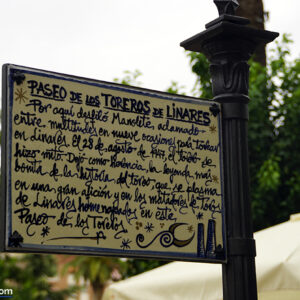 PASEO DE LOS TOREROS DE LINARES
Por aquí desfiló Manolete, aclamado
entre multitudes en nueve ocasiones para torear
en Linares. El 28 de agosto de 1947, el toreo se
hizo mito. Dejó como herencia, la leyenda más
bonita de la historia del toreo, que se plasma
en una gran afición y en los matadores de Toros
de Linares homenajeados en este
Paseo de los Toreros
.com